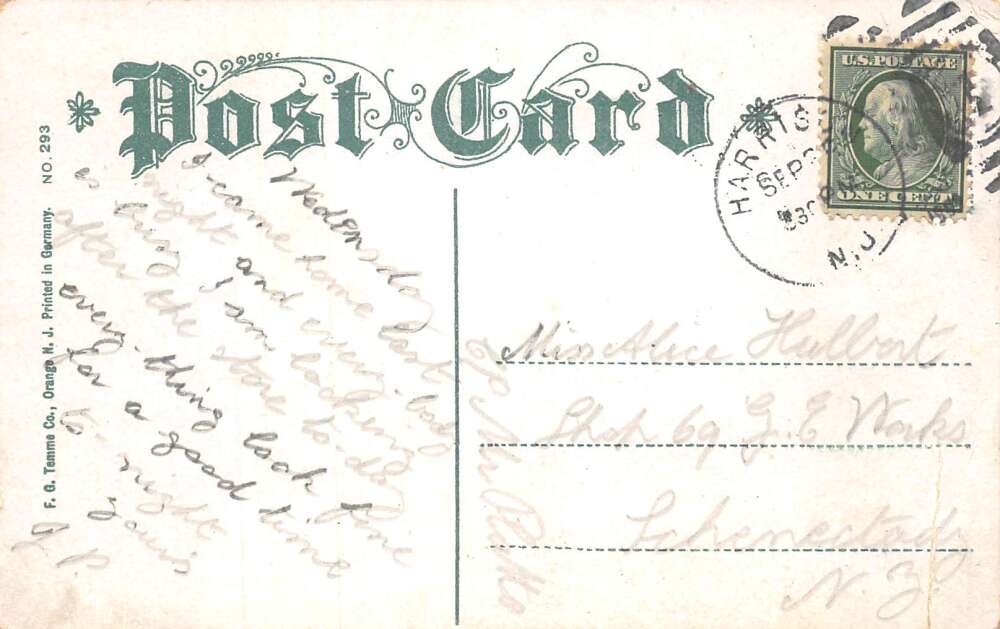 Post Card
NO. 293
F. G. Temme Co., Orange N. J. Printed in Germany.
U.S. POSTAGE
ONE CENT
HARRIS
SEP
N.J.
Wednesday
I came home last
night and every-body
as busy I am looking
after the store to do
every-thing look fine
for a good time
to-night
Yours
J. P.
Miss Alice Hulbert
Shop 69 G. E Works
Schenectady
N. Y.